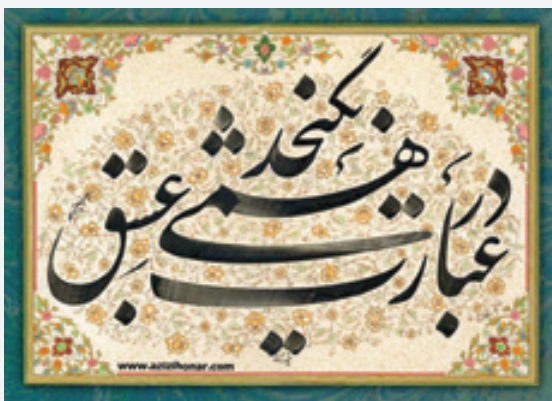 در عبارت همی نگنجد عشق
www.azizihonar.com